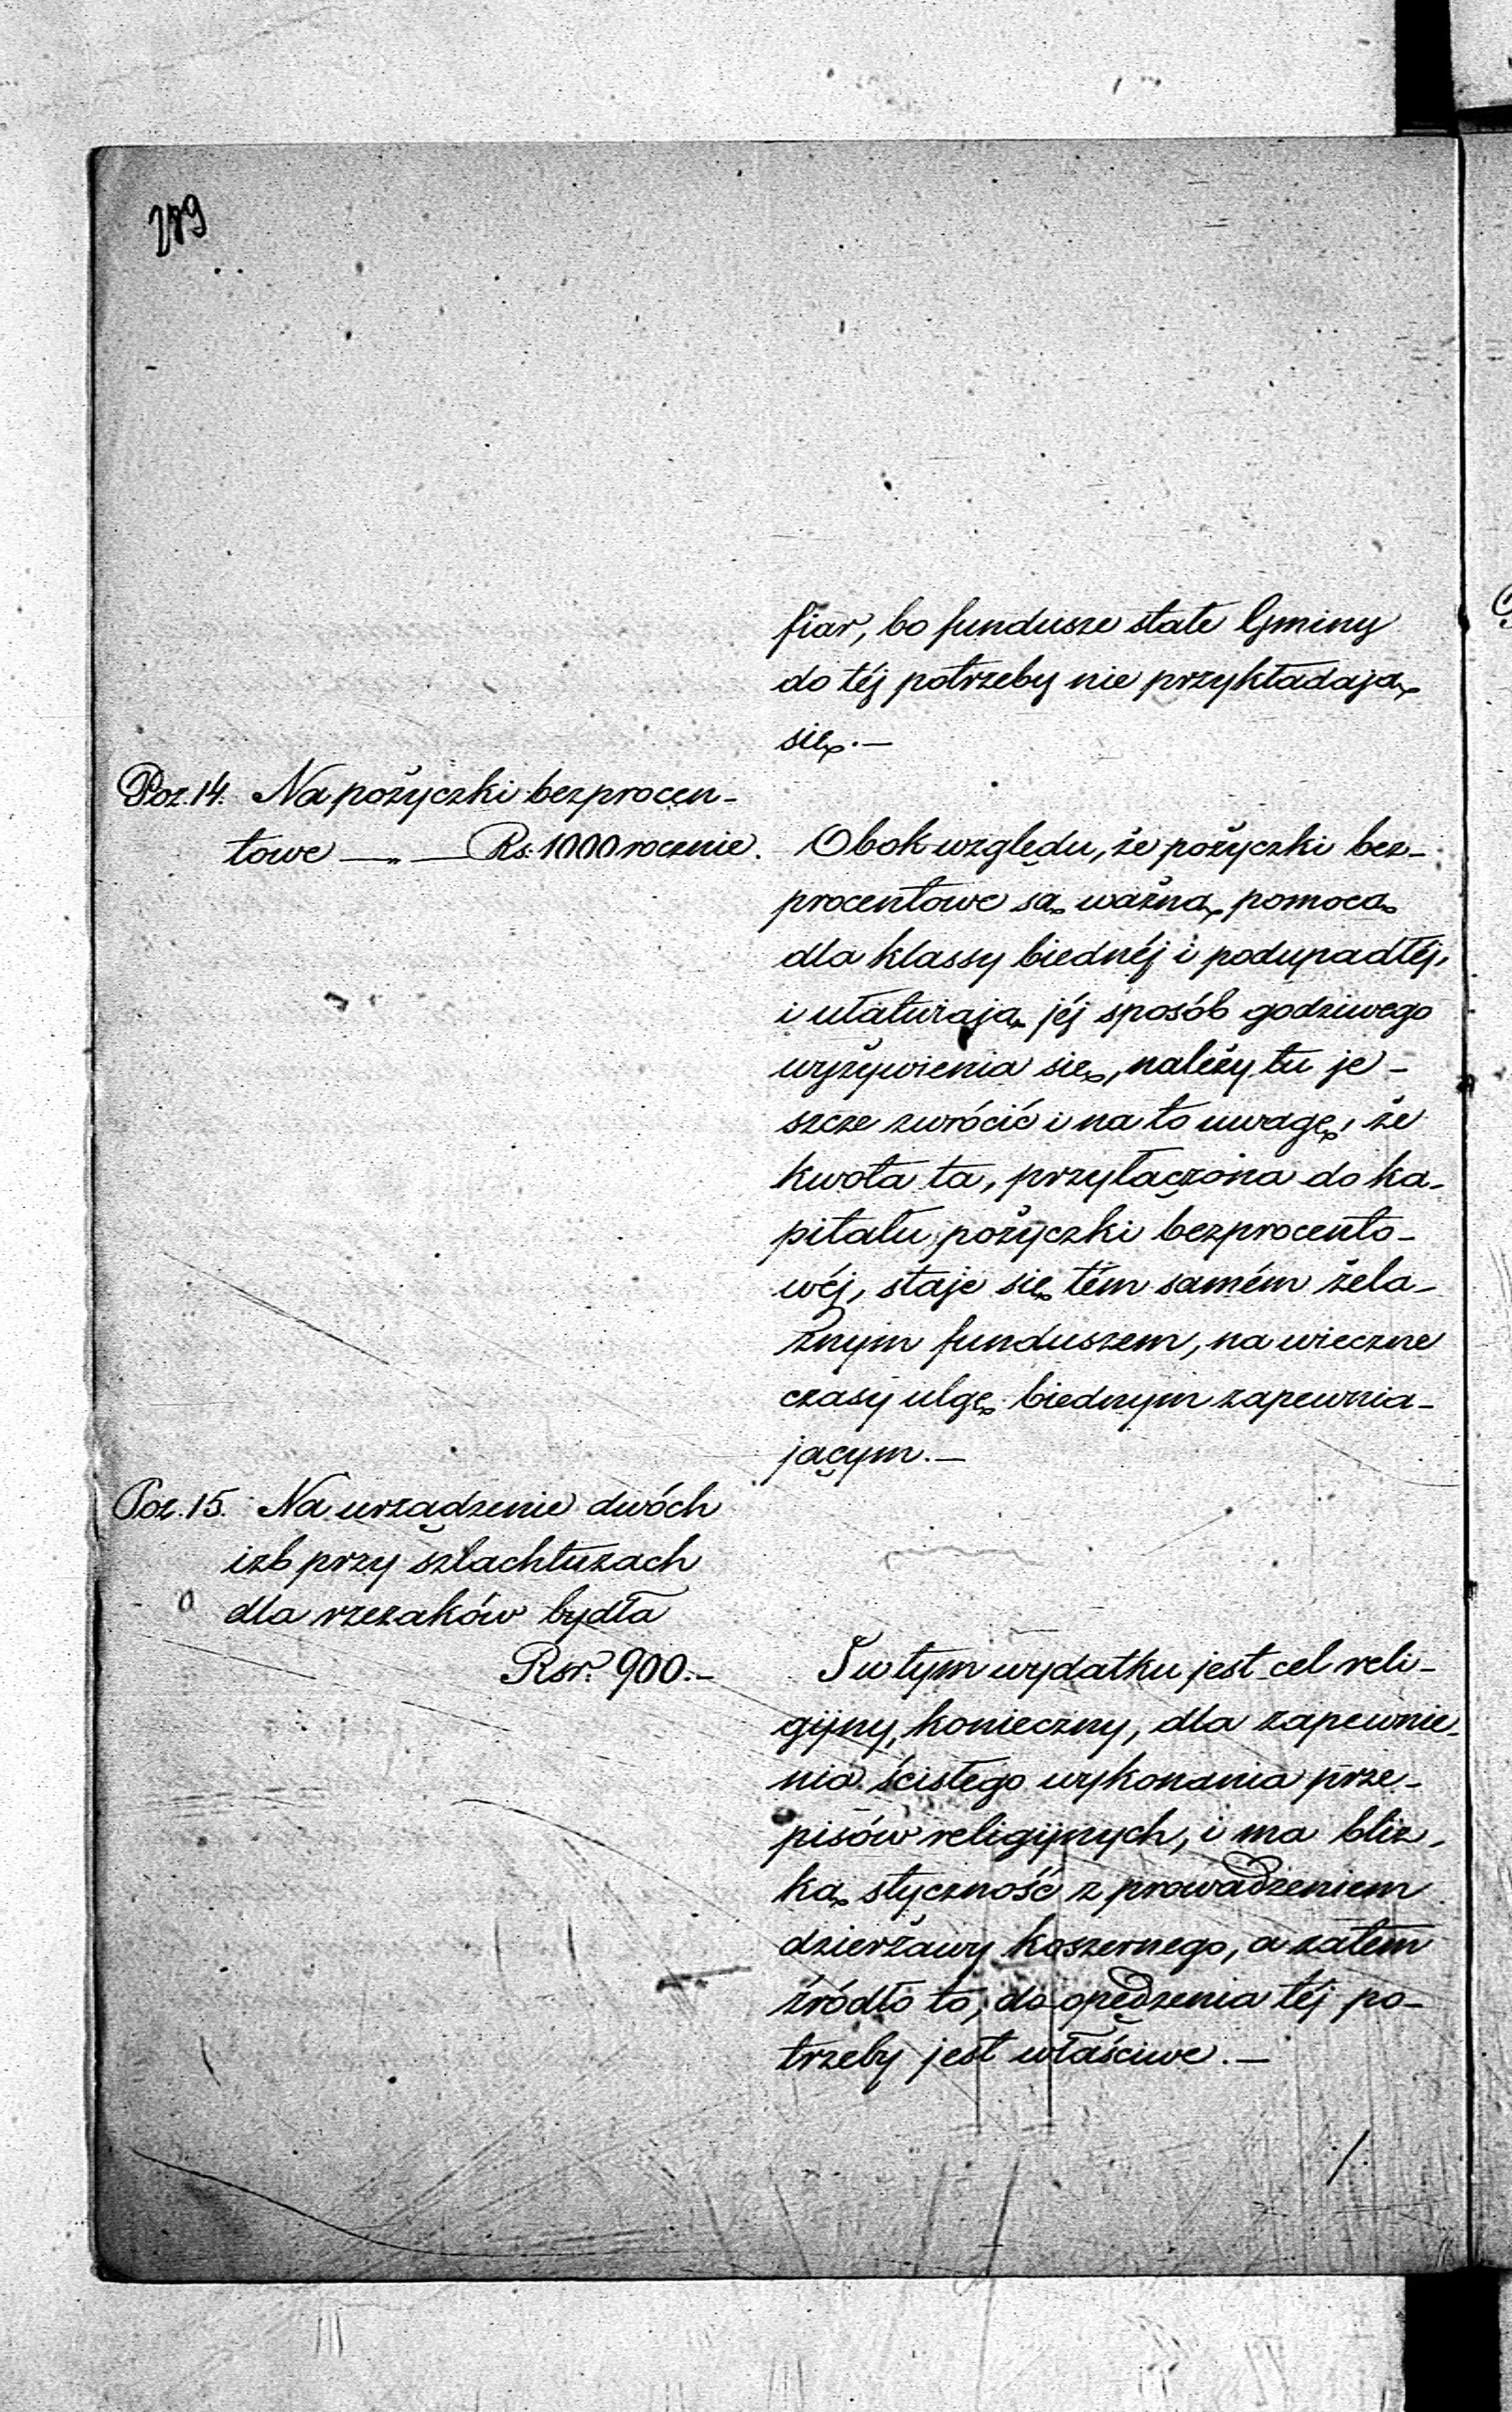 289
fiar, bo fundusze stałe Gminy
do téj potrzeby nie przykładają
się.—
Poz. 14. Na pożyczki bezprocen-
towe —„— Rs. 1000 rocznie.
Obok względu, że pożyczki bez-
procentowe są ważną pomocą
dla klassy biednéj i podupadłéj,
i ułatwiają jéj sposób godziwego
wyżywienia się, należy tu je-
szcze zwrócić i na to uwagę, że
kwota ta, przyłączona do ka-
pitału pożyczki bezprocento-
wéj, staje się tém samém żela-
znym funduszem, na wieczne
czasy ulgę biednym zapewnia-
jącym.—
Poz. 15. Na urządzenie dwóch
izb przy szlachtuzach
dla rzezaków bydła
Rsr. 900.—
I w tym wydatku jest cel reli-
gijny, konieczny, dla zapewnie-
nia ścisłego wykonania prze-
pisów religijnych, i ma bliz-
ką styczność z prowadzeniem
dzierżawy koszernego, a zatem
źródło to, do opędzenia téj po-
trzeby jest właściwe.—